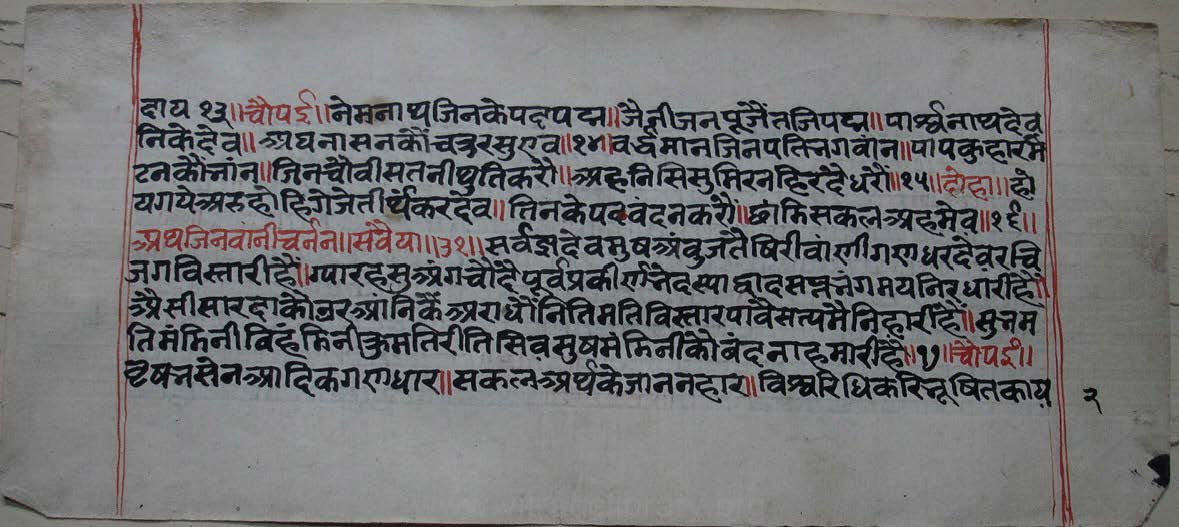 दाय १३॥चौपई॥नेमनाथजिनकेपदपद्म॥जैनीजनपूजैंतजिपद्म॥पार्श्वनाथदेव
निकेदेव॥अघनासनकौंचतुरसुएव॥१४॥वर्द्धमानजिनपतिभगवान॥पापकुहारमे
टनकौंभांन॥जिनचौवीसतनीथुतिकरौं॥अहनिसिसुमिरनहिरदैधरौं॥१५॥दोहा॥हो
यगयेअरुहोहिगेजेतीर्थंकरदेव॥तिनकेपदवंदनकरौं॥छांमिसकलअहमेव॥१६॥
अथजिनवांनीवर्नन॥सवैया॥३१॥सर्वज्ञदेवमुषअंबुजतैषिरीवांणीगणधरदेवरचि
जगविस्तारीहै॥ग्यारहसुअंगचौदैपूर्वप्रकीर्णभेदस्याद्वादसप्तभंगमयनिरधारीहै॥
अैसीसारदाकौउरआंनिकैंअराधौंनितिमतिविस्तारपावैसत्यमैनिहारीहै॥मुनम
तिमंमिनीविहंमिनीकुमतिरीतिसिवसुषमंमिनीकोवंदनाहमारीहै॥१७॥चौपई॥
वृषभसेनआदिकगणधार॥सकलअर्थकेजाननहार॥विश्वरिधिकरिभूषितकाय
२